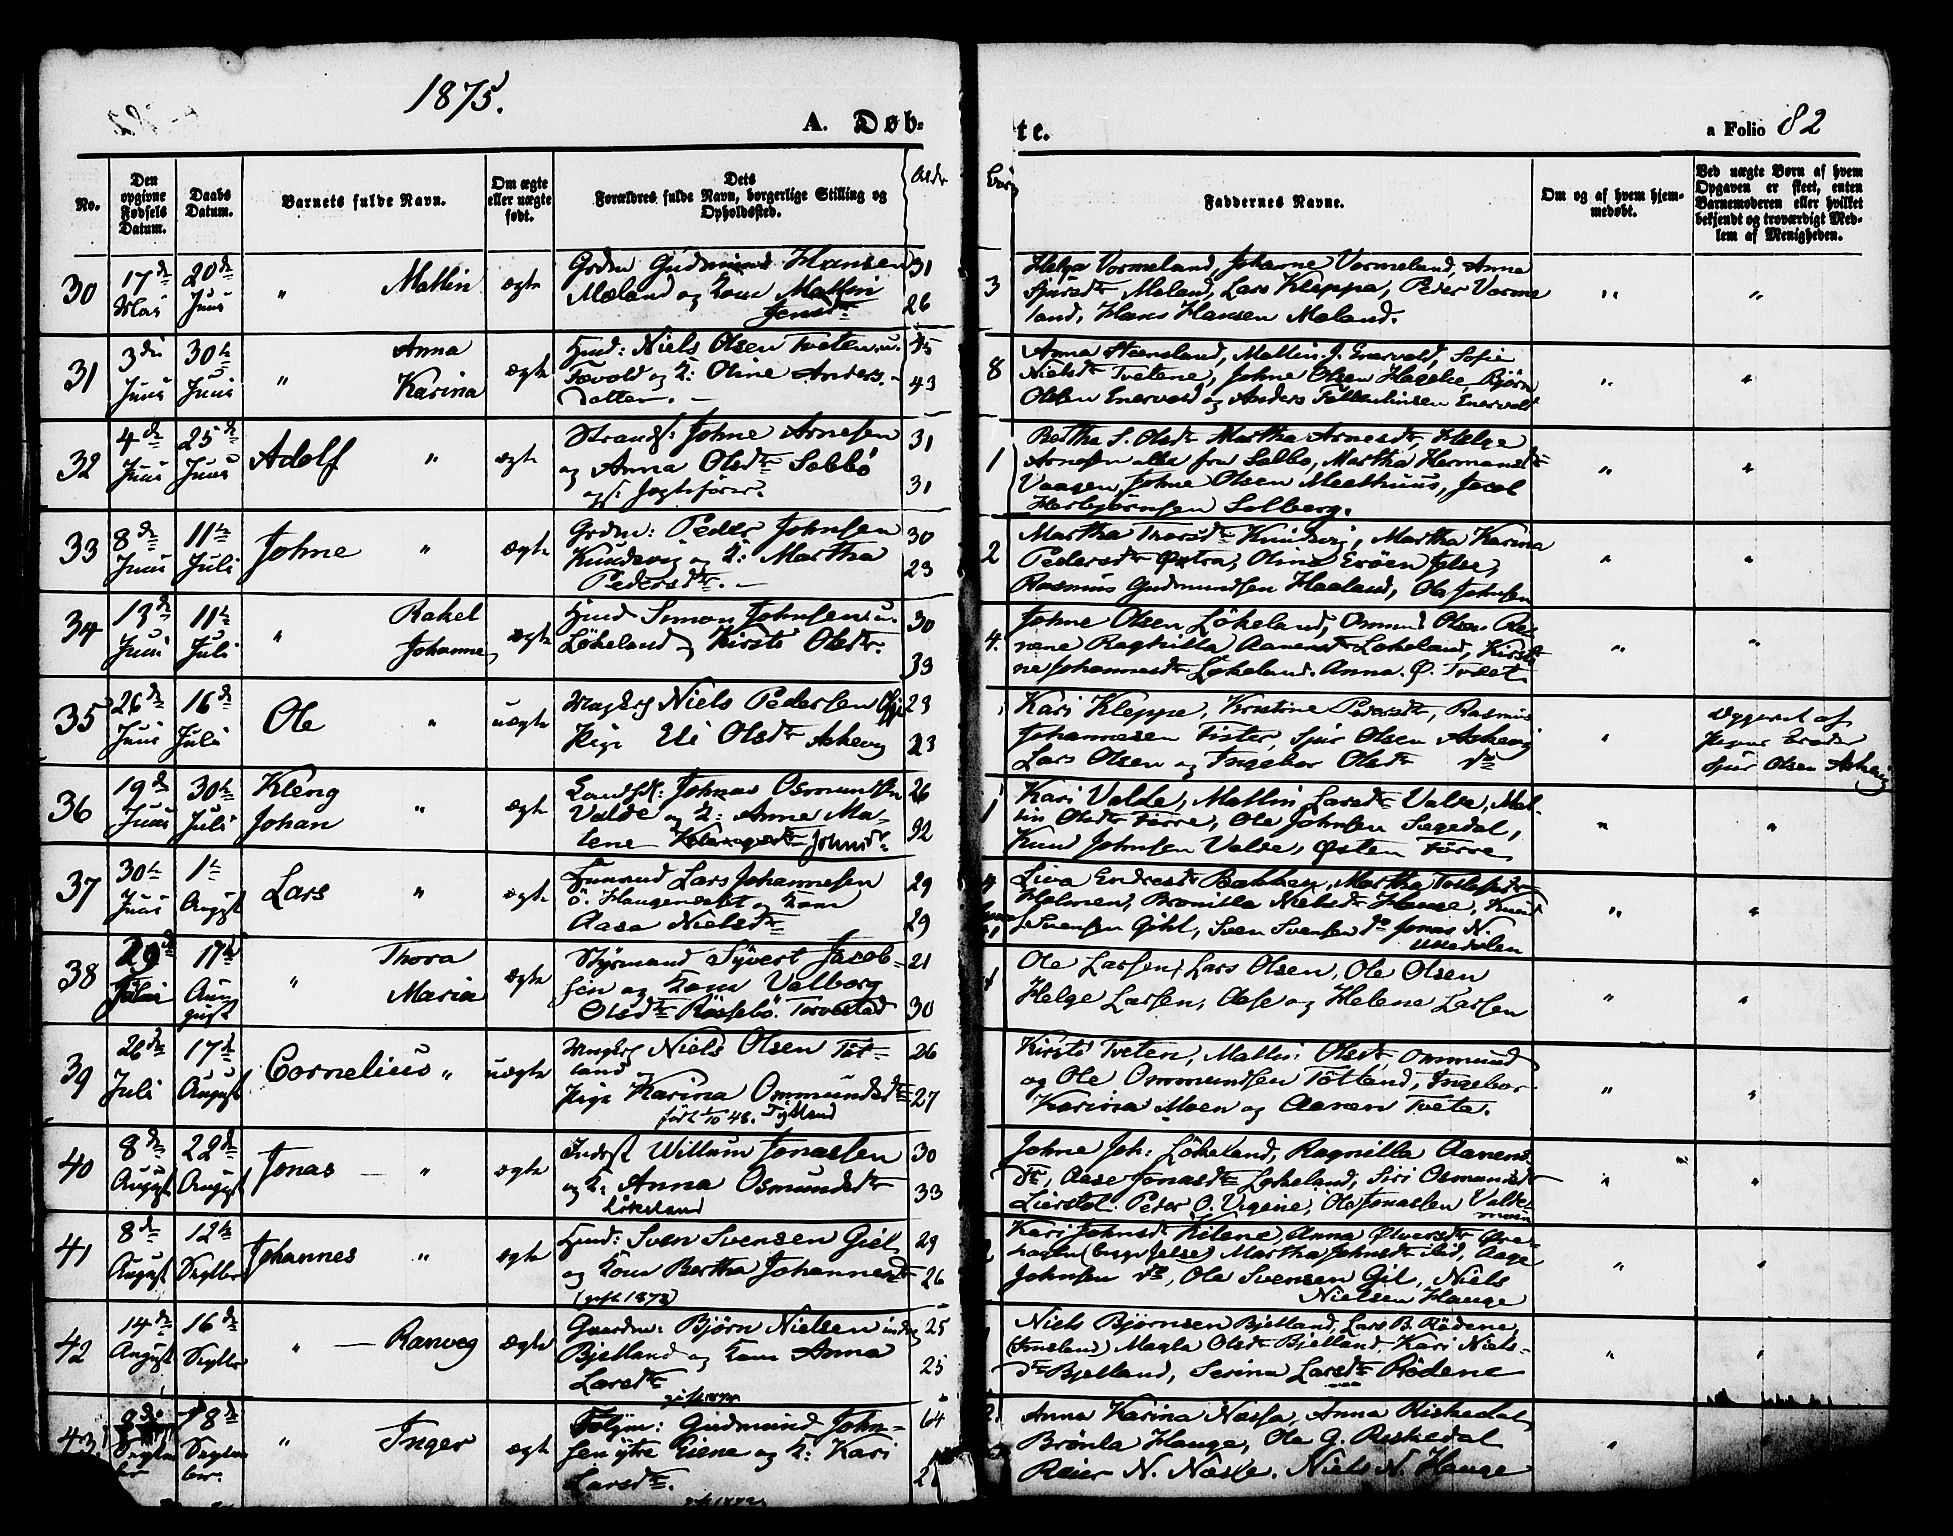 1875.
A. Døb-
te.
a Folio 82
No.
Den opgivne Fødsels Datum.
Daabs Datum.
Barnets fulde Navn.
Om ægte eller uægte født.
Dets Forældres fulde Navn, borgerlige Stilling og Opholdssted.
Faddernes Navne.
Om og af hvem hjemmedøbt.
Ved uægte Børn af hvem Opgaven er skeet, enten Barnemoderen eller hvilket bekjendt og troværdigt Medlem af Menigheden.
30
17de Mai
20de Juni
"
Mallin
ægte
Grdm Gudmund Hansen
Mæland og Kone Mallin
Jensdtr
31
26
3
Helga Vormeland, Johanne Vormeland, Anna
Sjursdtr Mæland, Lars Kleppa, Peder Vorme
land, Hans Hansen Mæland.
31
3die Juni
30te Juni
"
Anna
Karina
ægte
Hmd: Niels Olsen Tveten u.
Fævold og K: Oline Anders-
datter.
45
43
8
Anna Steensland, Mallin J. Enervold, Sofie
Nielsdtr Tvetene, Johne Olsen
Olsen Enervold og Anders
32
4de Juni
25de Juni
Adolf
"
ægte
Strands: Johne Arnesen
og Anna Olsdtr Sobbø
31
31
1
Bertha S. Olsdtr Martha Arnesdtr, Helge
Arnesen alle fra Sobbø, Martha Hermansdtr
Vaagen, Johne Olsen Meelhuus, Jacob
Herbjørnsen Solberg.
33
8de Juni
11te Juli
Johne
"
ægte
Grdm: Peder Johnsen
Kundevig og K: Martha
Pedersdtr.
30
23
2
Pedersdtr Østra, Olina Erøen Jelse,
Rasmus Gudmundsen Haaland, Ole Johnsen
34
13de Juni
11te Juli
"
Rakel
Johanne
ægte
Hmd Simon Johnsen u.
Løkeland og Kirsti Olsdtr.
30
33
4.
Johne Olsen Løkeland, Ommund Olsen
Ragnilla Aanensdtr Løkeland, Kirsti
ne Johannesdtr Løkeland. Anna Ø. Tveet
35
26de Juni
16de Juli
Ole
"
uægte
Ungkrl Niels Pedersen
Pige Eli Olsdtr Askevig
23
23
Kari Kleppe, Kristine Pedersdtr, Rasmus
Johannesen Fister, Sjur Olsen Askevig
Lars Olsen og Ingebor Olsdtr do
Opgivet af
Pigens Broder
Sjur Olsen Askevig
36
19de Juni
30te Juli
Kleng
Johan
"
ægte
Landhdl: Johnas Osmundsen
Valde og K: Anne Ma-
lene Johnsdtr
26
32
1
Kari Valde, Mallin Larsdtr Valde, Mal-
lin Olsdtr Førre, Ole Johnsen Sægedal,
Knud Johnsen Valde, Østen Førre
37
30te Juni
1te Augst
Lars
"
ægte
Lars Johannesen
og Kone
Aasa Nielsdtr
29
29
4
Siva Endresdtr Bakken, Martha Tollefsdtr
Holmen, Bronilla Nielsdtr Hauge, Knud
Svensen Gihl, Sven Svensen do Jonas N.
38
29de
17de August
"
Thora
Maria
ægte
Styrmand Syvert Jacob-
sen og Kone Valborg
Olsdtr Røssebø. Torvestad
21
30
Ole Larsen, Lars Olsen, Ole Olsen
Helge Larsen, Aase og Helene Larsen
39
26de Juli
17de August
Cornelius
"
uægte
Ungkrl Niels Olsen Tøt-
land
Pige Karina Ommundsdtr
Tøtland
26
27
Kirsti Tveten, Mallin Olsdtr, Ommund
og Ole Ommundsen Tøtland, Ingebor
Karina Moen og Aanen Tveta.
40
8de Augst
22de Augst
Jonas
"
ægte
Inderst Willum Jonassen
og K: Anna Osmundsdtr
Løkeland
30
33
Johne Joh: Løkeland, Ragnilla Aanens-
dtr, Aase Jonasdtr Løkeland, Siri Osmundsdtr
Lierstøl. Peder O. Vignie, Ole Jonassen Valde-
41
8de August
12te Septbr
Johannes
"
ægte
Hmd: Sven Svensen Giel
og Kone Bertha Johannesdtr
(gift 1873)
29
26
2
Kari Johnsdtr Kilene, Anna Ølversdtr Øre-
hagen (begge Jelse) Martha Johnsdtr ibid, Aage
Johnsen do, Ole Svensen Gil, Niels
Nielsen Hauge
42
14de August
16de Septbr
"
Ranveg
ægte
Gaardm: Bjørn Nielsen
Bjelland og Kone Anna
Larsdtr
25
25
Niels Bjørnsen Bjelland, Lars B. Rødene,
(Imsland) Magla Olsdtr Bjelland, Kari Niels-
dtr Bjelland, Serina Larsdtr Rødene
43
8de Septem ber
18de Septem ber.
"
Inger
ægte
Gudmund John-
sen ytre Eiene og K: Kari
Larsdtr.
64
Anna Karina Næssa, Anna Riskedal,
Brønla Hauge, Ole G. Riskedal
Reier N. Næsse. Niels N. Hauge